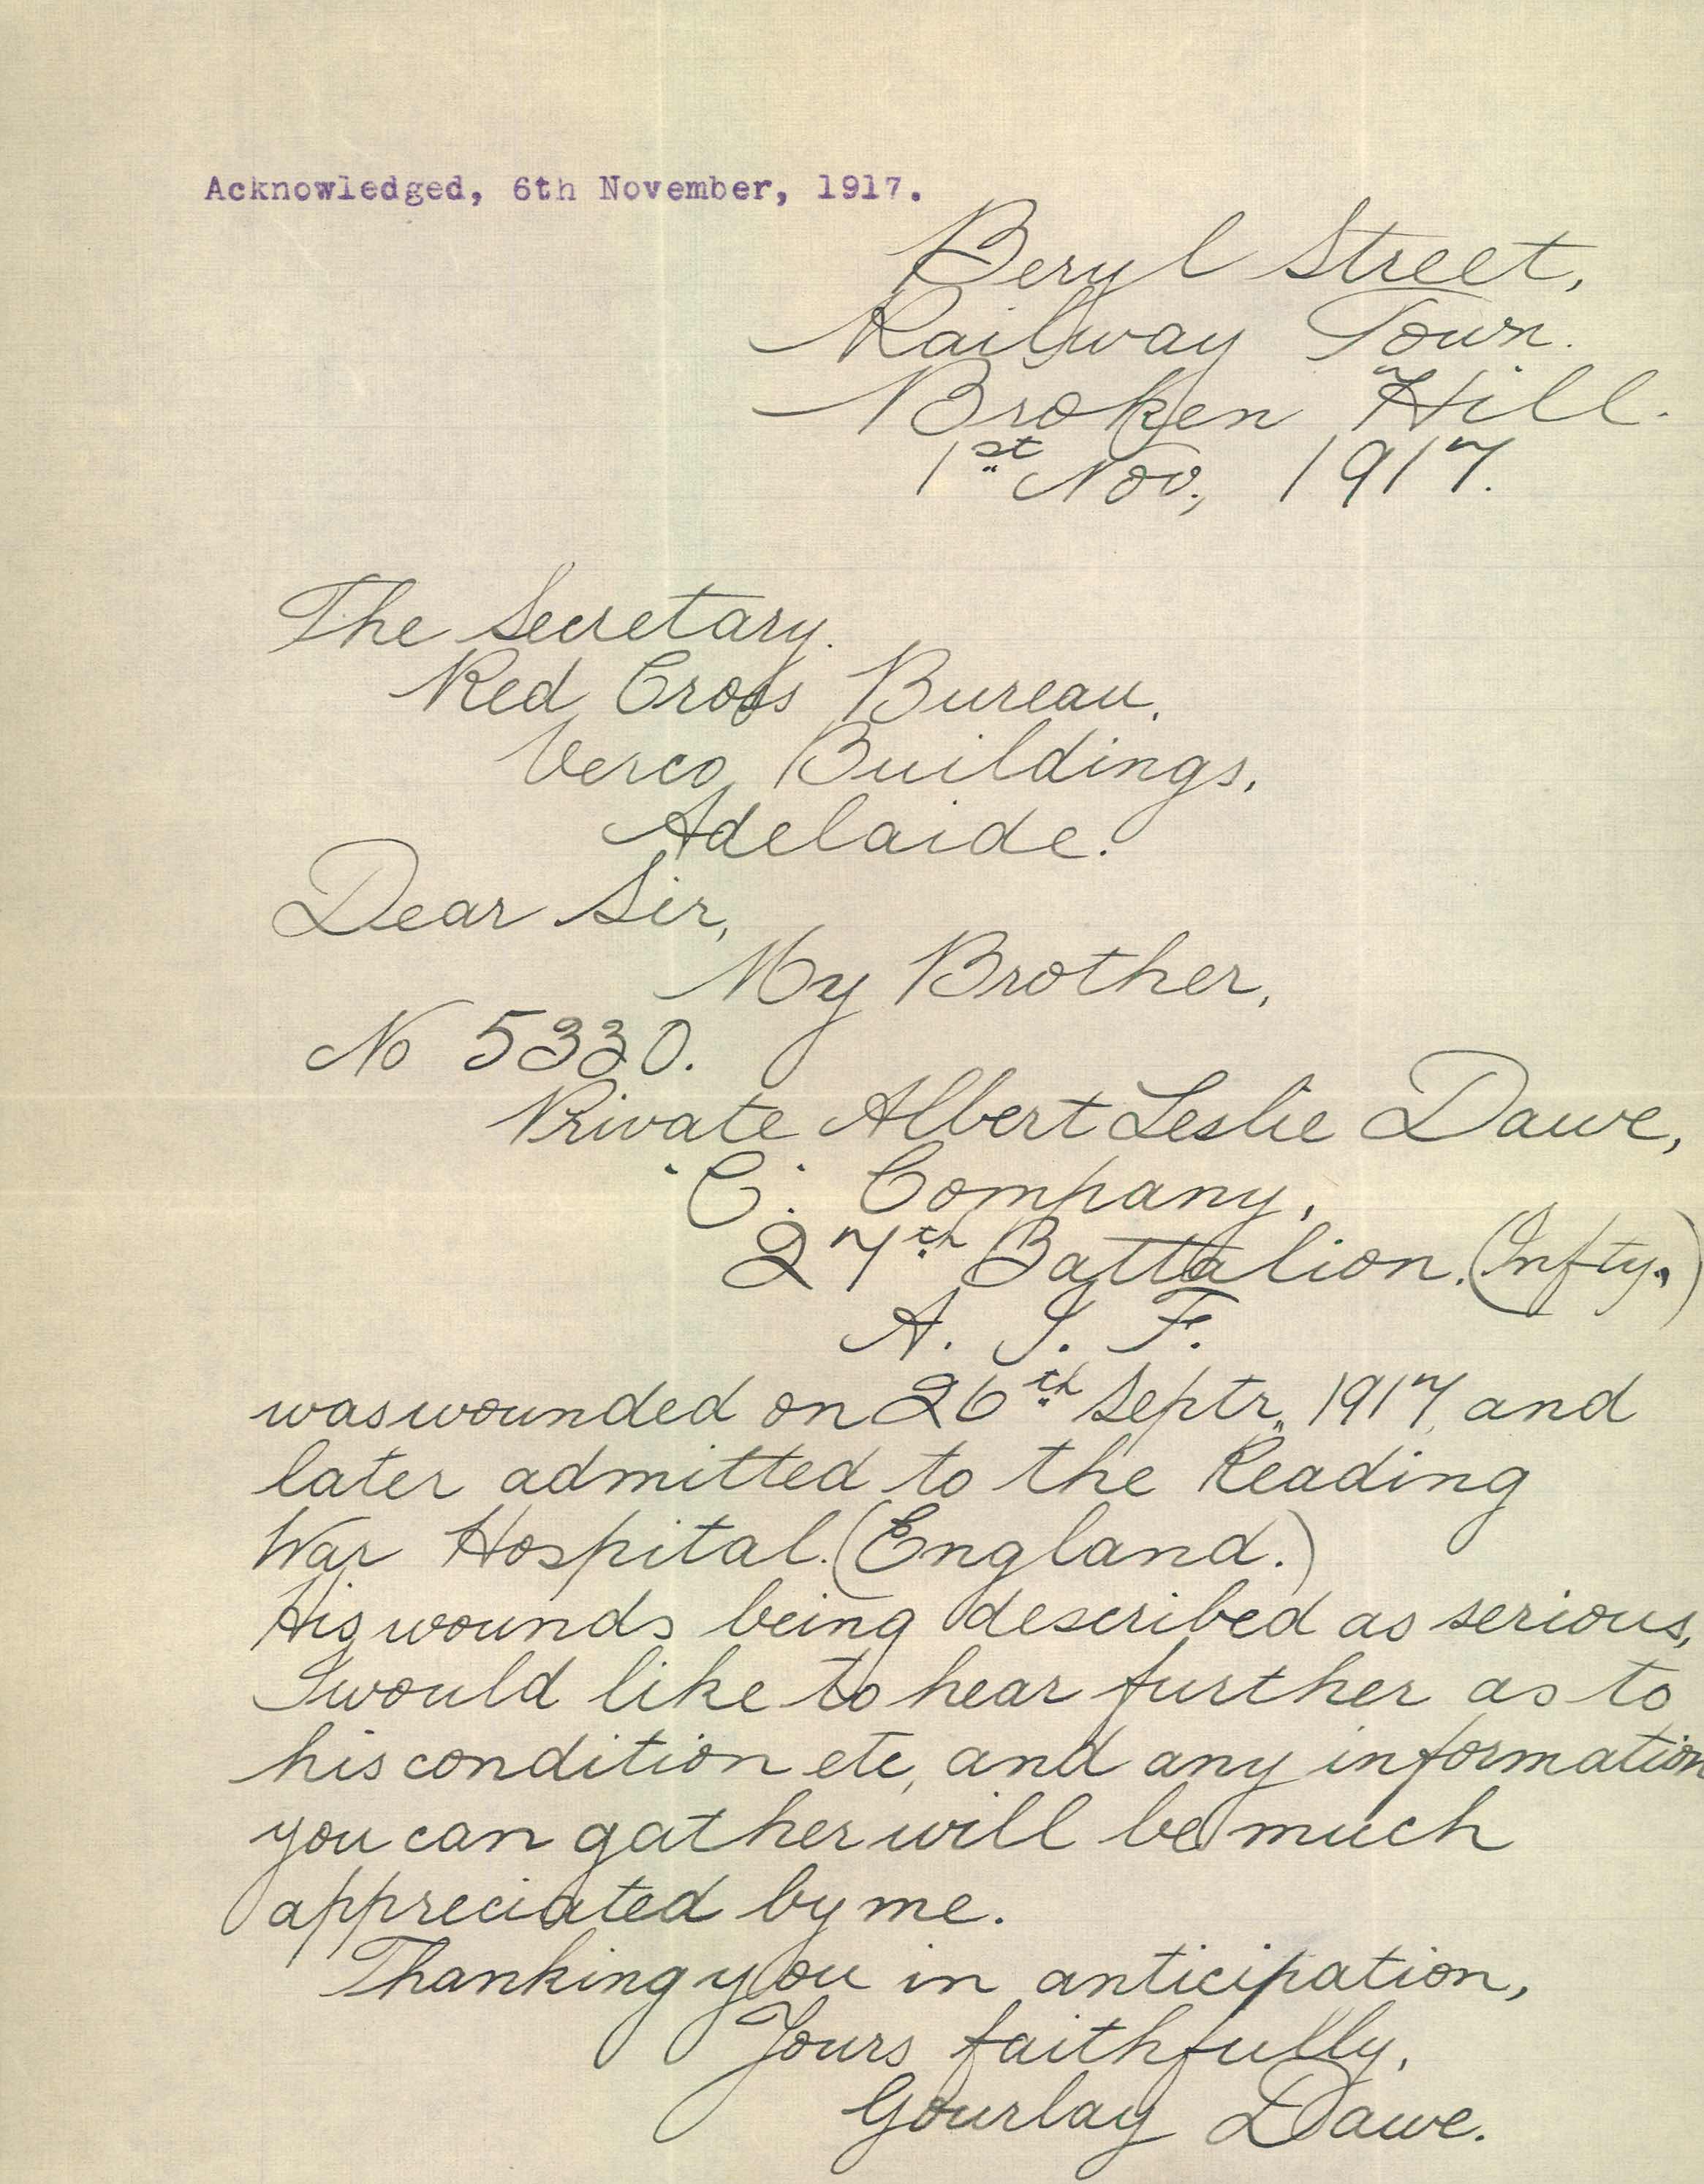 Acknowledged, 6th November, 1917.
Beryl Street,
Railway Town.
Broken Hill.
1st Nov., 1917.
The Secretary.
Red Cross Bureau,
Verco Buildings,
Adelaide.
Dear Sir,
My Brother,
No 5330.
Private Albert Leslie Dawe,
"C". Company,
27th Battalion. (Infty.)
A. I. F.
was wounded on 26th Septr., 1917, and
later admitted to the Reading
War Hospital. (England.)
His wounds being described as serious,
I would like to hear further as to
his condition etc, and any information
you can gather will be much
appreciated by me.
Thanking you in anticipation,
Yours faithfully,
Gourlay Dawe.